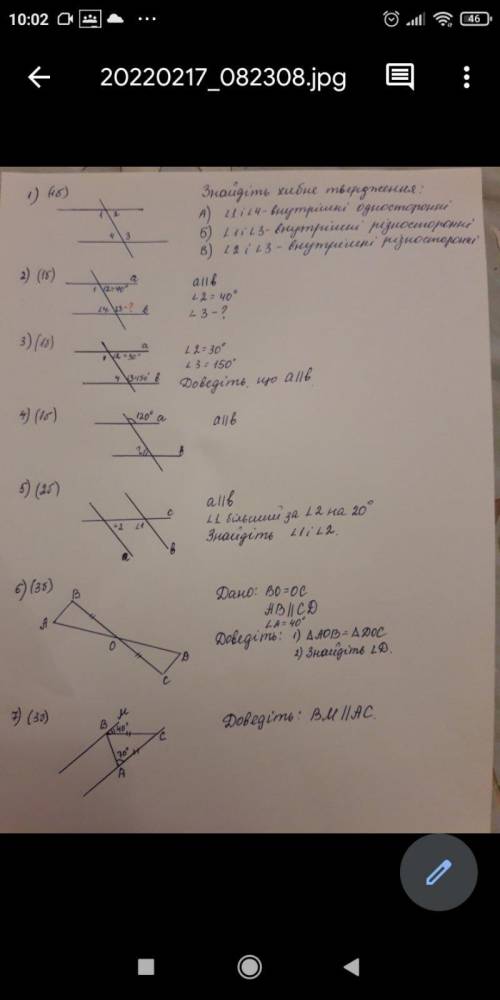 10:02
46
20220217_082308.jpg
1) (1б)
Знайдіть хибне твердження:
А) ∠1 і ∠4 - внутрішні односторонні
Б) ∠1 і ∠3 - внутрішні різносторонні
В) ∠2 і ∠3 - внутрішні різносторонні
1 2
4 3
2) (1б)
a
1 ∠2=40°
∠4 ∠3-? b
a||b
∠2 = 40°
∠3 - ?
3) (1б)
a
∠2=30°
4 ∠3=150° b
∠2=30°
∠3=150°
Доведіть, що a||b.
4) (1б)
120° a
a||b
5) (2б)
c
∠2 ∠1
a b
a||b
∠1 більший за ∠2 на 20°
Знайдіть ∠1 і ∠2.
6) (3б)
B
A
O
C
Дано: BO=OC
AB||CD
∠A=40°
Доведіть: 1) ΔAOB=ΔDOC
2) Знайдіть ∠D.
7) (3б)
M
B 40° C
70°
A
Доведіть: BM||AC.